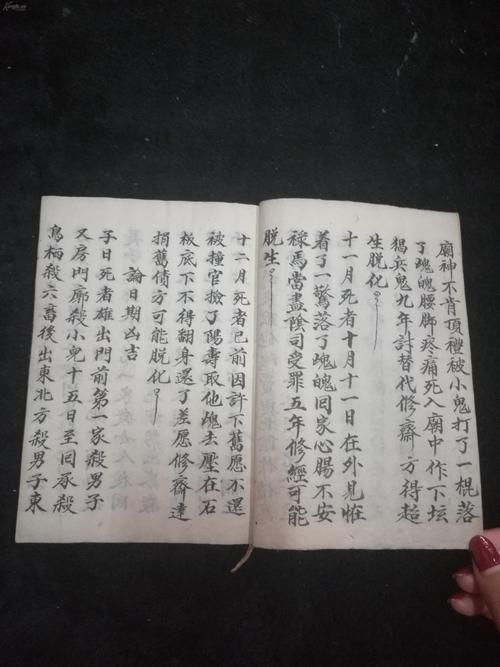 廟神不肯頂禮被小鬼打了一棍落
了魂魄腰脚疼痛死入廟中作下坛
猖兵鬼九年討替代修齋方得超
生脱化
十一月死者十月十一日在外見恠
着了一驚落了魂魄囘家心腸不安
禄馬當盡陰司受罪五年修經可能
脱生
十二月死者已前因許下舊愿不還
被撞官撿了陽壽取他魂去壓在石
板底下不得翻身還了差愿修齋達
損舊债方可能脱化
論日期凶吉
子日死者雄出門前第一家殺男子
又房門廓殺小兒十五日至囘承殺
鳥栖殺六畜後出東北方殺男子東